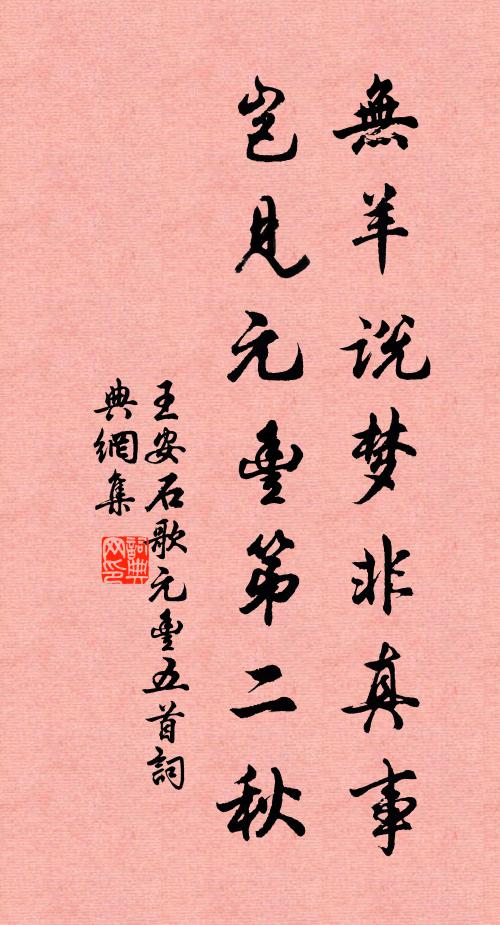 無羊説梦非真事
豈見元豊第二秋
王安石歌元豊五首詞
典網集
詞典
网印